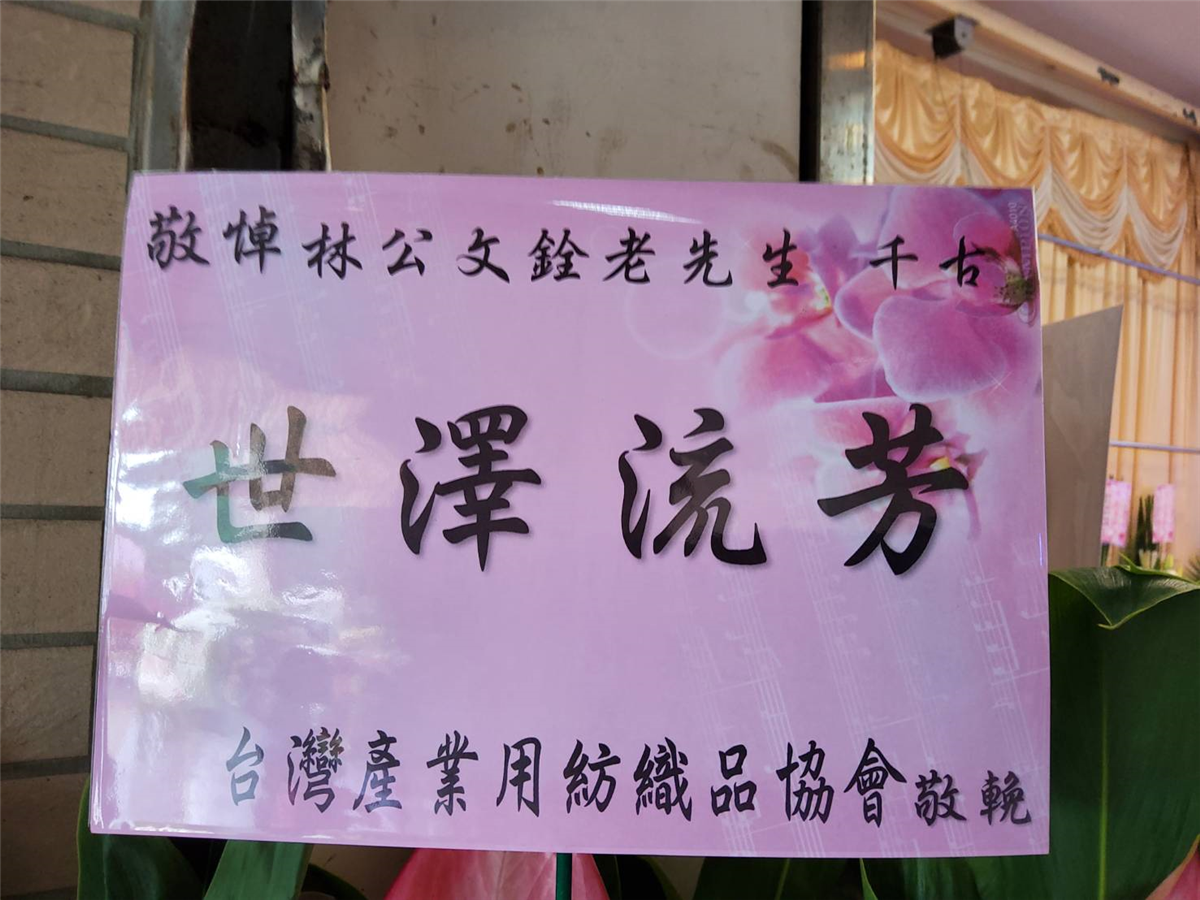 敬悼林公文銓老先生 千古
世澤流芳
台灣產業用紡織品協會敬輓